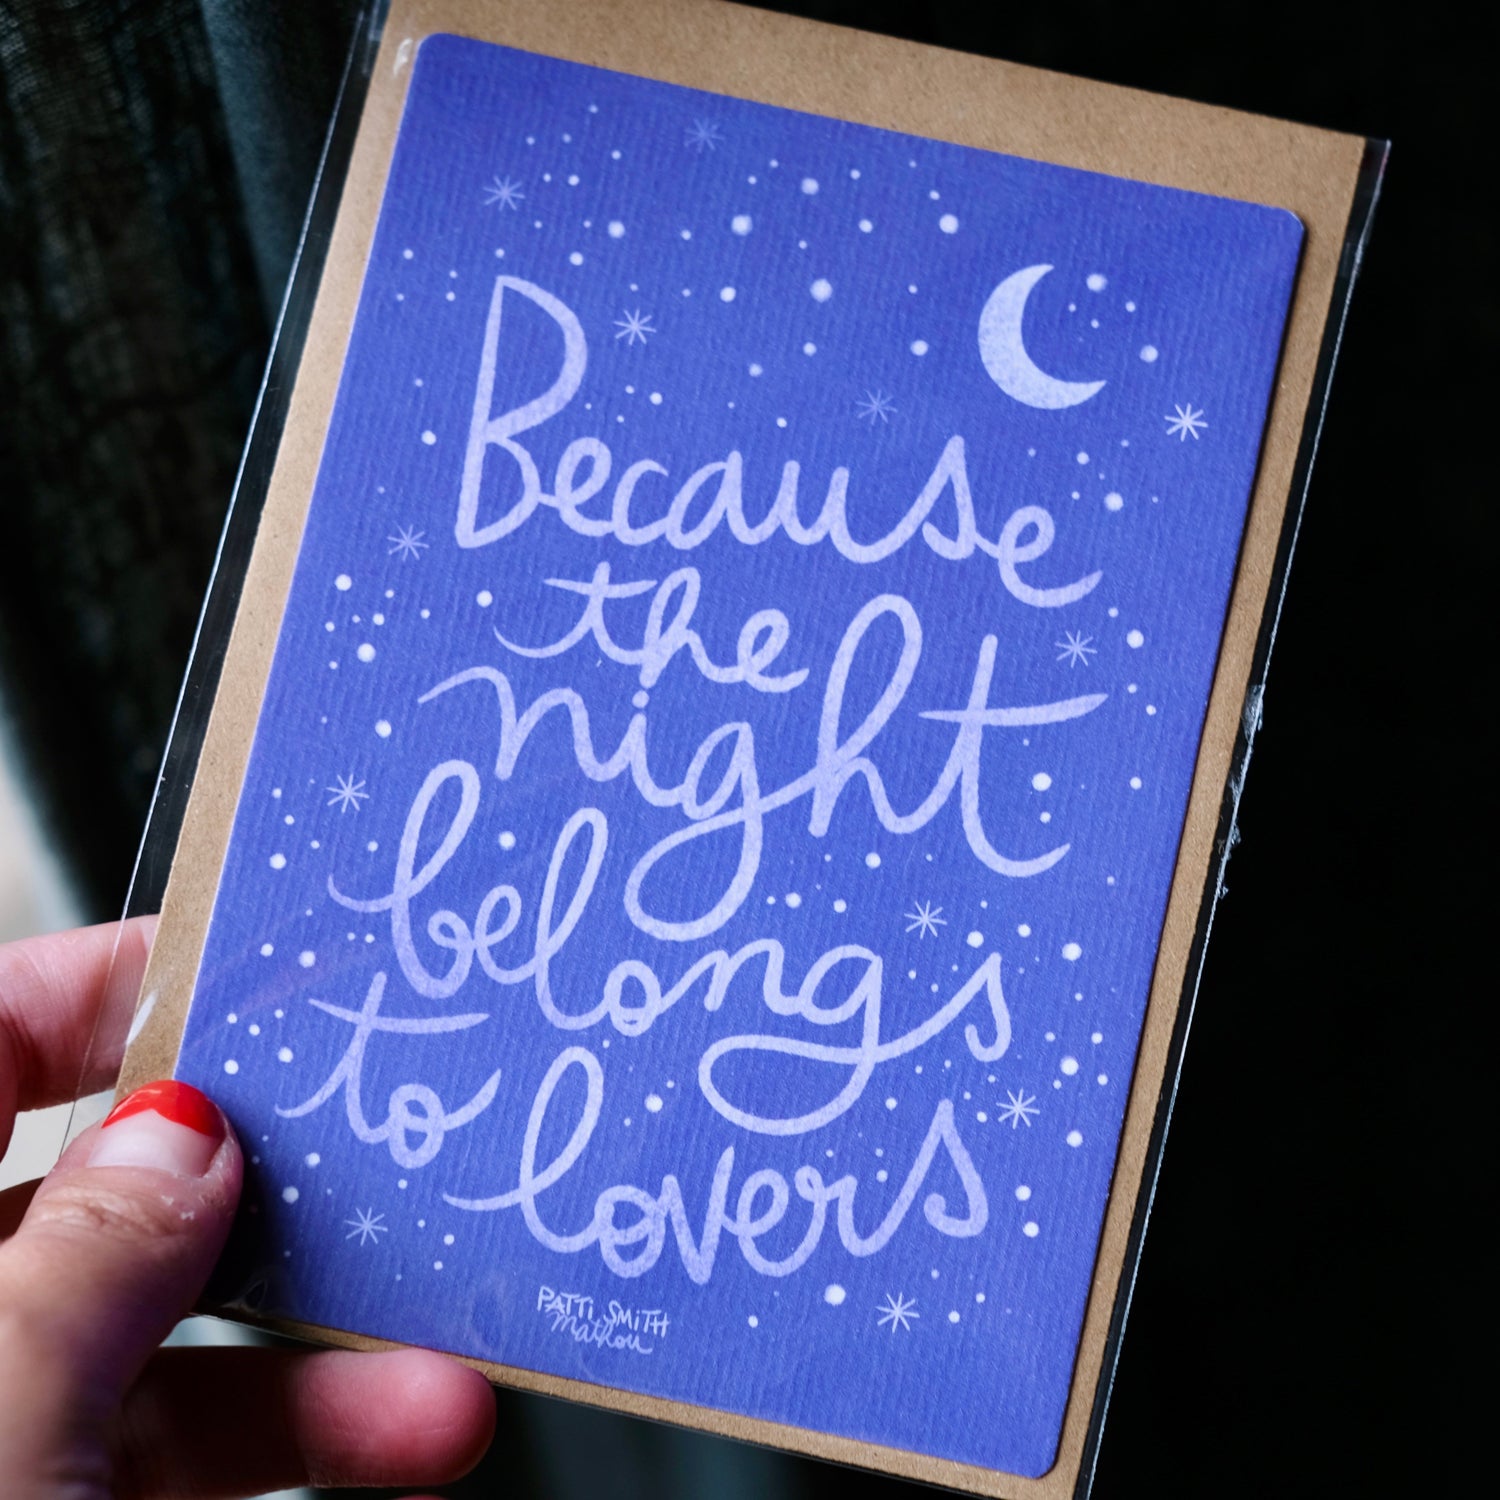 Because
the
night
belongs
to lovers
PATTI SMITH
Mathou